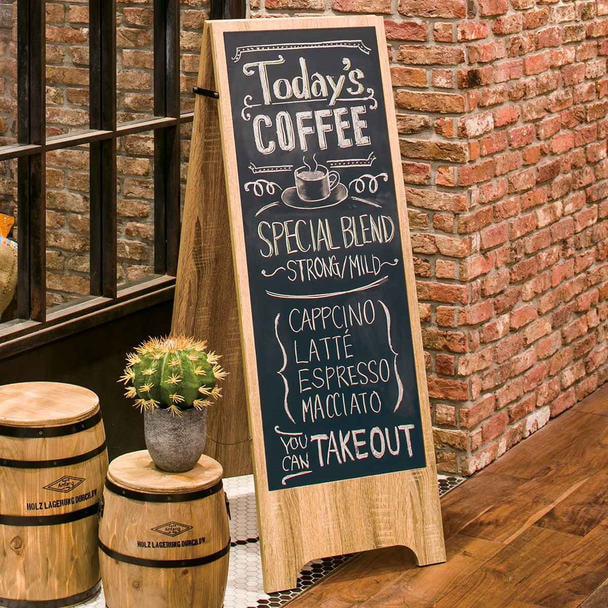 Today's
COFFEE
SPECIAL BLEND
STRONG/MILD
CAPPCINO
LATTÉ
ESPRESSO
MACCIATO
YOU CAN TAKE OUT
HOLZ LAGERUNG DURCH.DV.
HOLZ LAGERUNG DURCH.DV.